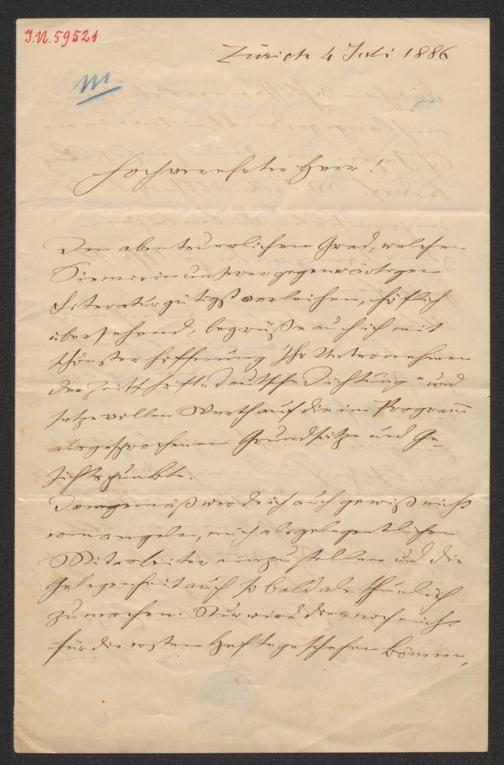 J.N. 59521
Zürich 4 Juli 1886
Hochverehrter Herr!
Den abenteuerlichen Grad, welchen
Sie mir in unserer gegenwärtigen
Literatur gütigst verleihen, höflich
übersehend, begrüße auch ich mit
schönster Hoffnung Ihr Unternehmen
der Zeitschrift „Deutsche Dichtung" und
setze vollen Werth auf die im Programm
ausgesprochenen Grundsätze und Ge-
sichtspunkte.
Demgemäß werde ich auch gewiß nicht
ermangeln, mich als gelegentlichen
Mitarbeiter einzustellen und die
Gelegenheit auch so bald als thunlich
zu machen. Nur wird dies noch nicht
für die ersten Hefte geschehen können,